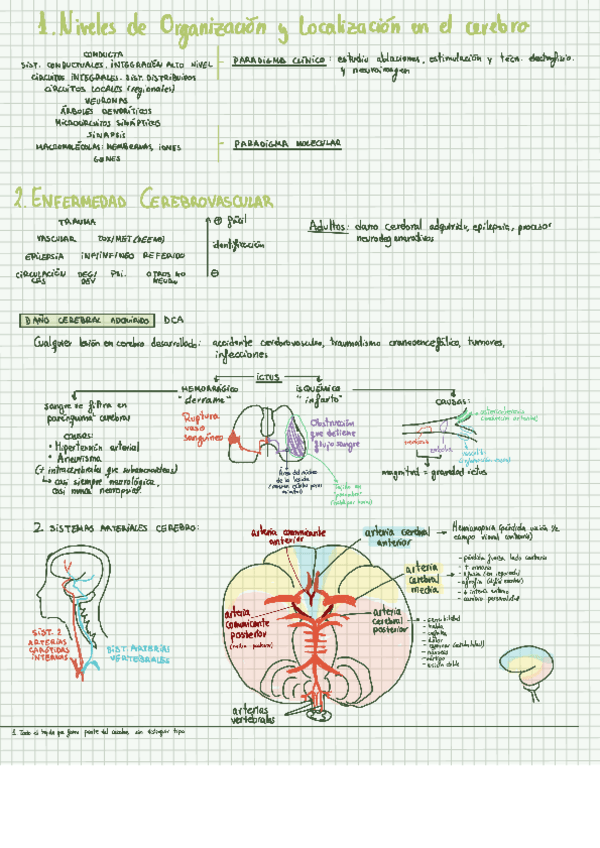 1. Niveles de Organización y Localización en el cerebro
CONDUCTA
SIST. CONDUCTUALES, INTEGRACIÓN ALTO NIVEL
CIRCUITOS INTEGRALES. SIST. DISTRIBUIDOS
CIRCUITOS LOCALES (regionales)
NEURONAS
ÁRBOLES DENDRÍTICOS
MICROCIRCUITOS SINÁPTICOS
SINAPSIS
MACROMOLÉCULAS: MEMBRANAS, IONES
GENES
PARADIGMA CLÍNICO: estudio ablaciones, estimulación y técn. electrofisio.
y neuroimagen
PARADIGMA MOLECULAR
2. ENFERMEDAD CEREBROVASCULAR
TRAUMA
VASCULAR TOX/MET
EPILEPSIA INF/INF/NEO REFERIDO
CIRCULACIÓN DEG/ PSI. OTROS NO
DEV NEURO
⊕ fácil
identificación
⊖
Adultos: daño cerebral adquirido, epilepsia, procesos
neurodegenerativos
DAÑO CEREBRAL ADQUIRIDO DCA
Cualquier lesión en cerebro desarrollado: accidente cerebrovascular, traumatismo craneoencefálico, tumores,
infecciones
ICTUS
HEMORRÁGICO
"derrame"
ISQUÉMICO
"infarto"
sangre se filtra en
parénquima cerebral
CAUSAS:
• Hipertensión arterial
• Aneurisma
(+ intracerebrales que subaracnoideas)
↳ casi siempre neurológica,
casi nunca neuropsic.
Ruptura
vaso
sanguíneo
Obstrucción
que detiene
flujo sangre
Área del núcleo
de la lesión
CAUSAS:
trombosis
embolia
magnitud = gravedad ictus
2. SISTEMAS ARTERIALES CEREBRO:
SIST. 2
ARTERIAS
CARÓTIDAS
INTERNAS
SIST. ARTERIAS
VERTEBRALES
arteria comunicante
anterior
arteria cerebral
anterior
Hemianopsia (pérdida visión ½
campo visual
arteria
cerebral
media
- pérdida fuerza lado contrario
arteria
comunicante
posterior
arteria
cerebral
posterior
- sensibilidad
- habla
- náuseas
- vértigo
- visión doble
arterias
vertebrales